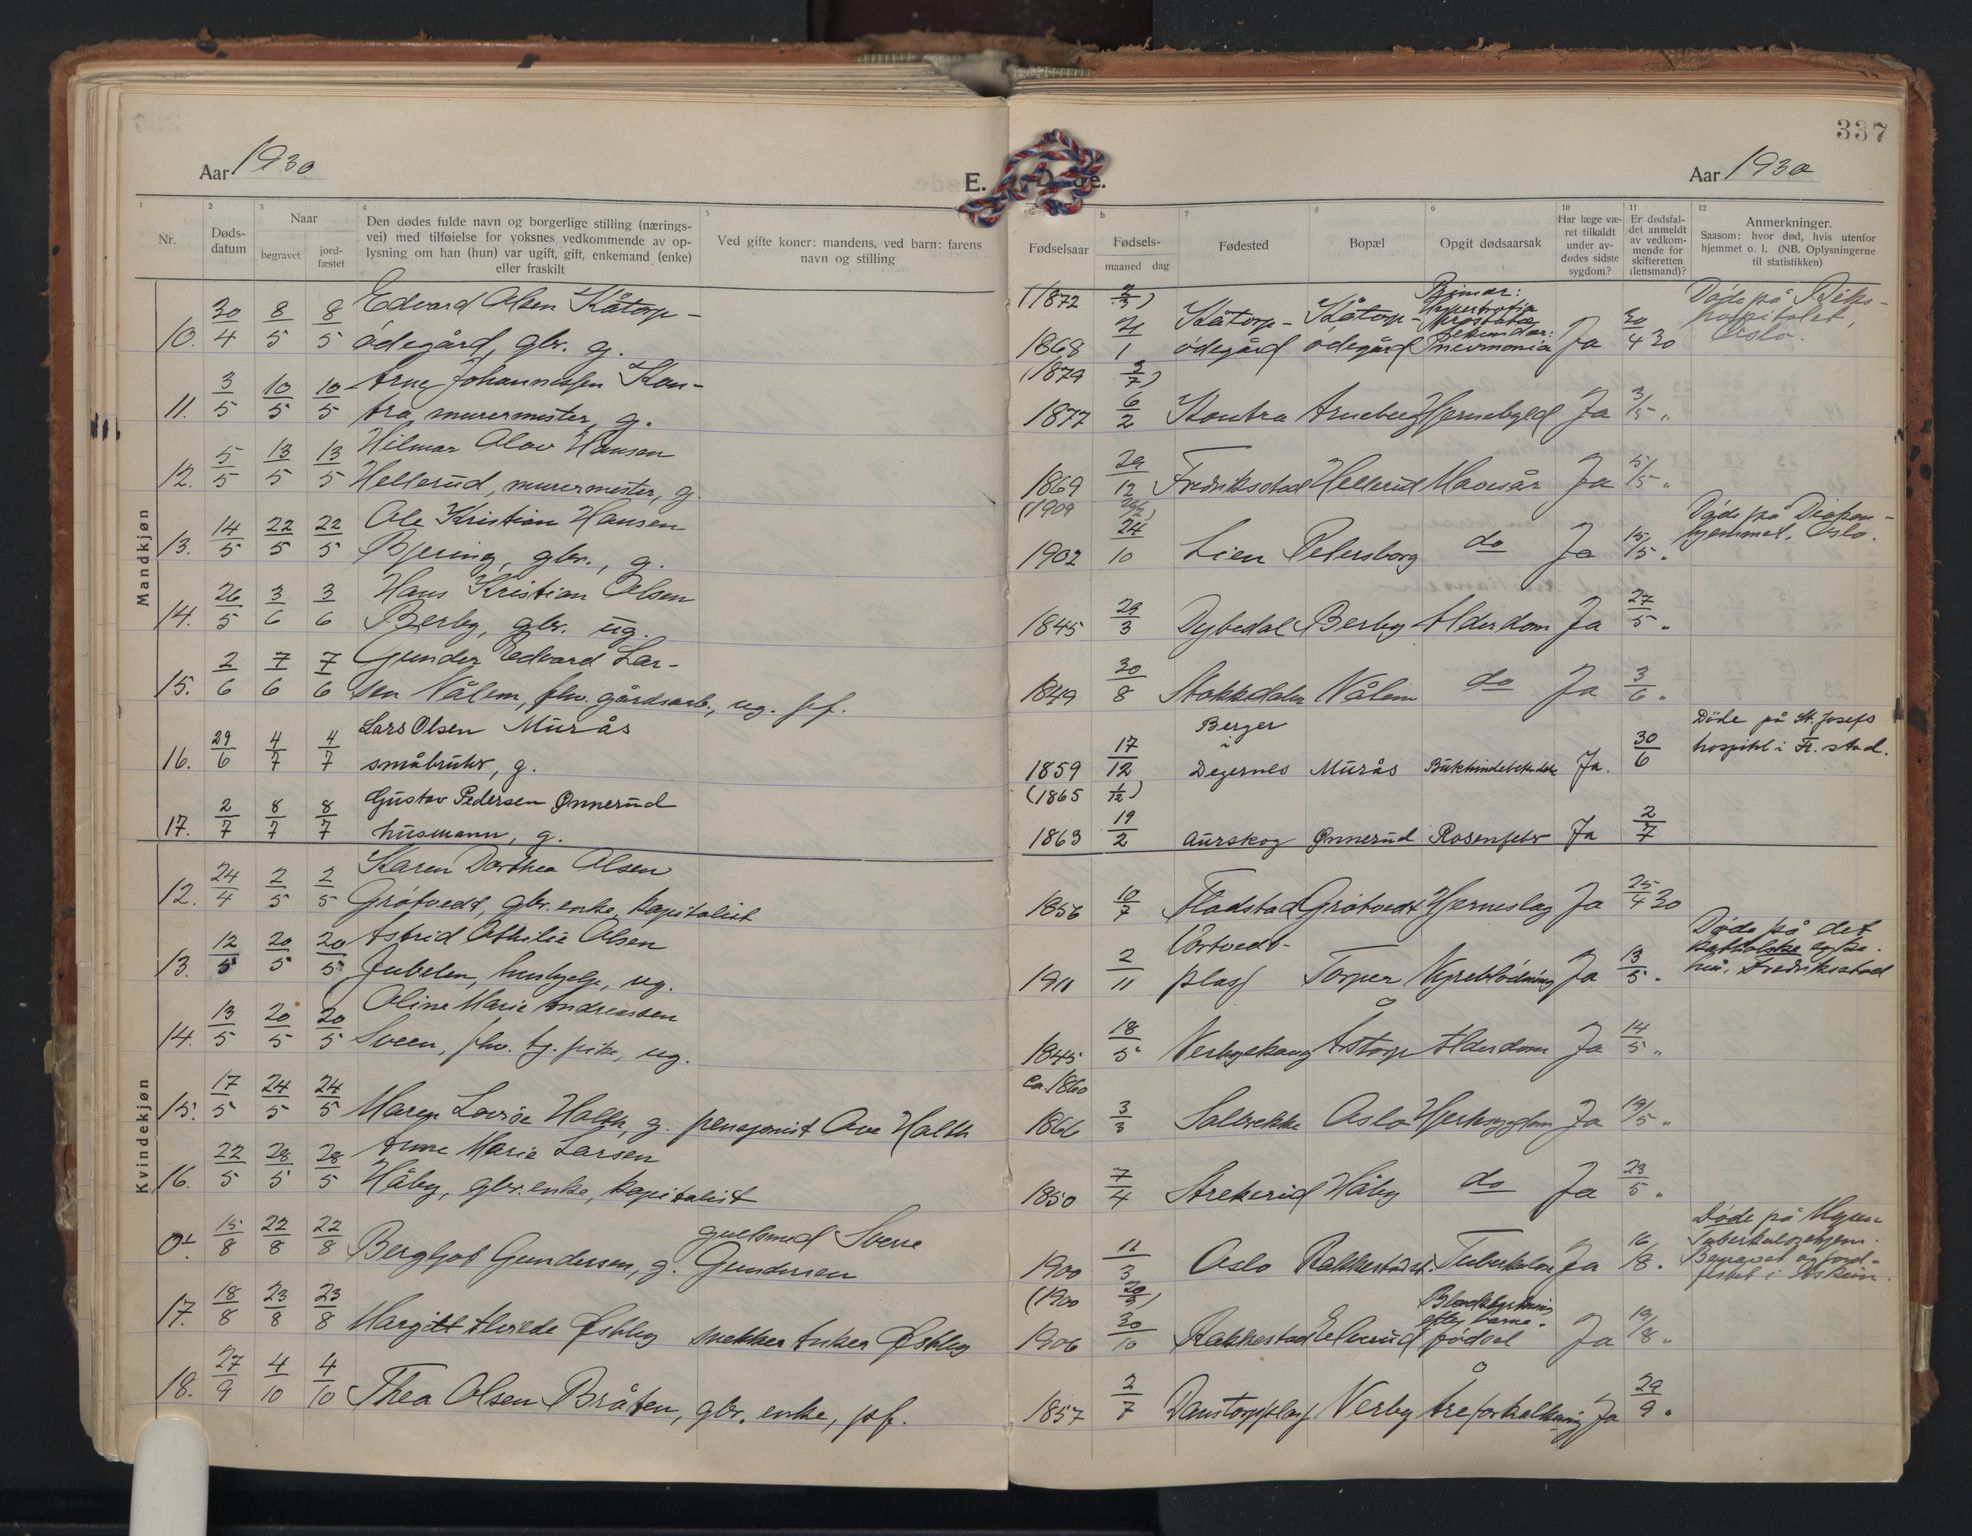 337
Aar 1930
E. Døde.
Aar 1930
1 2 3 4 5 b 7 8 9 10 11 12
Nr.
Døds-
datum
Naar
begravet
jord-
fæstet
Den dødes fulde navn og borgerlige stilling (nærings-
vei) med tilføielse for voksnes vedkommende av op-
lysning om han (hun) var ugift, gift, enkemand (enke)
eller fraskilt
Ved gifte koner: mandens, ved barn: farens
navn og stilling
Fødselsaar
Fødsels-
maaned dag
Fødested
Bopæl
Opgit dødsaarsak
Har læge væ-
ret tilkaldt
under av-
dødes sidste
sygdom?
Er dødsfal-
det anmeldt
av vedkom-
mende for
skifteretten
(lensmand)?
Anmerkninger.
Saasom: hvor død, hvis utenfor
hjemmet o. l. (NB. Oplysningerne
til statistikken)
Mandkjøn
Edvard Olsen Kåtorp- (1872 2/3) Døde på Riks-
10. 30/4 8/5 8/5 ødegård, gbr. g. 1868 21/1 Kåtorp-ødegård Kåtorp-ødegård Pneumonia Ja 30/4 30 hospitalet, Oslo.
Arne Johannessen Kon- (1879 2/7)
11. 3/5 10/5 10/5 tra, murermester, g. 1877 6/2 Kontra Arneberg Hjernebyld Ja 3/5 "
Hilmar Olav Hansen
12. 5/5 13/5 13/5 Hellerud, murermester, g. 1869 29/12 Fredriksstad Hellerud Mavesår Ja 5/5 "
Ole Kristian Hansen (1909) Døde på Diakon-
13. 14/5 22/5 22/5 Bjering, gbr., g. 1902 24/10 Lien Petersborg do Ja 15/5 " hjemmet, Oslo.
Hans Kristian Olsen
14. 26/5 3/6 3/6 Berby, gbr. ug. 1845 29/3 Dybedal Berby Alderdom Ja 27/5 "
Gunder Edvard Lar-
15. 2/6 7/6 7/6 sen Nålem, fhv. gårdsarb., ug. ff. 1849 30/8 Stokkedalen Nålem do Ja 3/6 "
Lars Olsen Murås Berger Døde på St. Josefs
16. 29/6 4/7 4/7 småbruker, g. 1859 17/12 i Degernes Murås Ja. 30/6 hospital i Fr. stad.
Gustav Pedersen Ønnerud (1865 1/12)
17. 2/7 8/7 8/7 husmann, g. 1863 19/2 Aurskog Ønnerud Rosenfeber Ja 2/7
Kvindekjøn
Karen Dorthea Olsen
12. 24/4 2/5 2/5 Grøtvedt, gbr. enke, kapitalist 1856 10/7 Fladstad Grøtvedt Hjerneslag Ja 25/4 30
Astrid Othilie Olsen Døde på det
13. 12/5 20/5 20/5 Jubelen, hushjelp, ug. 1911 2/11 Vortvedt-plass Torper Nyreblødning Ja 13/5 " katholske syke-hus, Fredriksstad
Oline Marie Andreassen
14. 13/5 20/5 20/5 Sveen, fhv. tj. pike, ug. 1845 18/5 Verbyskaug Åstorp Alderdom Ja 14/5 "
ca. 1860
15. 17/5 24/5 24/5 Maren Lovise Holth, g. pensjonist Ove Holth 1866 3/3 Solbrekke Oslo Hjertesygdom Ja 19/5 "
Anne Marie Larsen
16. 22/5 28/5 28/5 Håby, gbr. enke, kapitalist 1850 7/4 Strekerud Håby do Ja 23/5 "
gullsmed Sverre Døde på Mysen
01. 15/8 22/8 22/8 Bergljot Gundersen, g. Gundersen 1900 11/3 Oslo Rakkestad st. Tuberkulose Ja 16/8 " Tuberkulosehjem.
Begravet og jord-
festet i Askim.
(1900 20/3)
17. 18/8 23/8 23/8 Margitt Alvede Østby snekker Anker Østby 1906 30/10 Rakkestad Elverud efter barne-fødsel Ja 19/8 "
18. 27/9 4/10 4/10 Thea Olsen Bråten, gbr. enke, ff. 1857 2/7 Danstorpplass Verby Åreforkalkning Ja 29/9 "